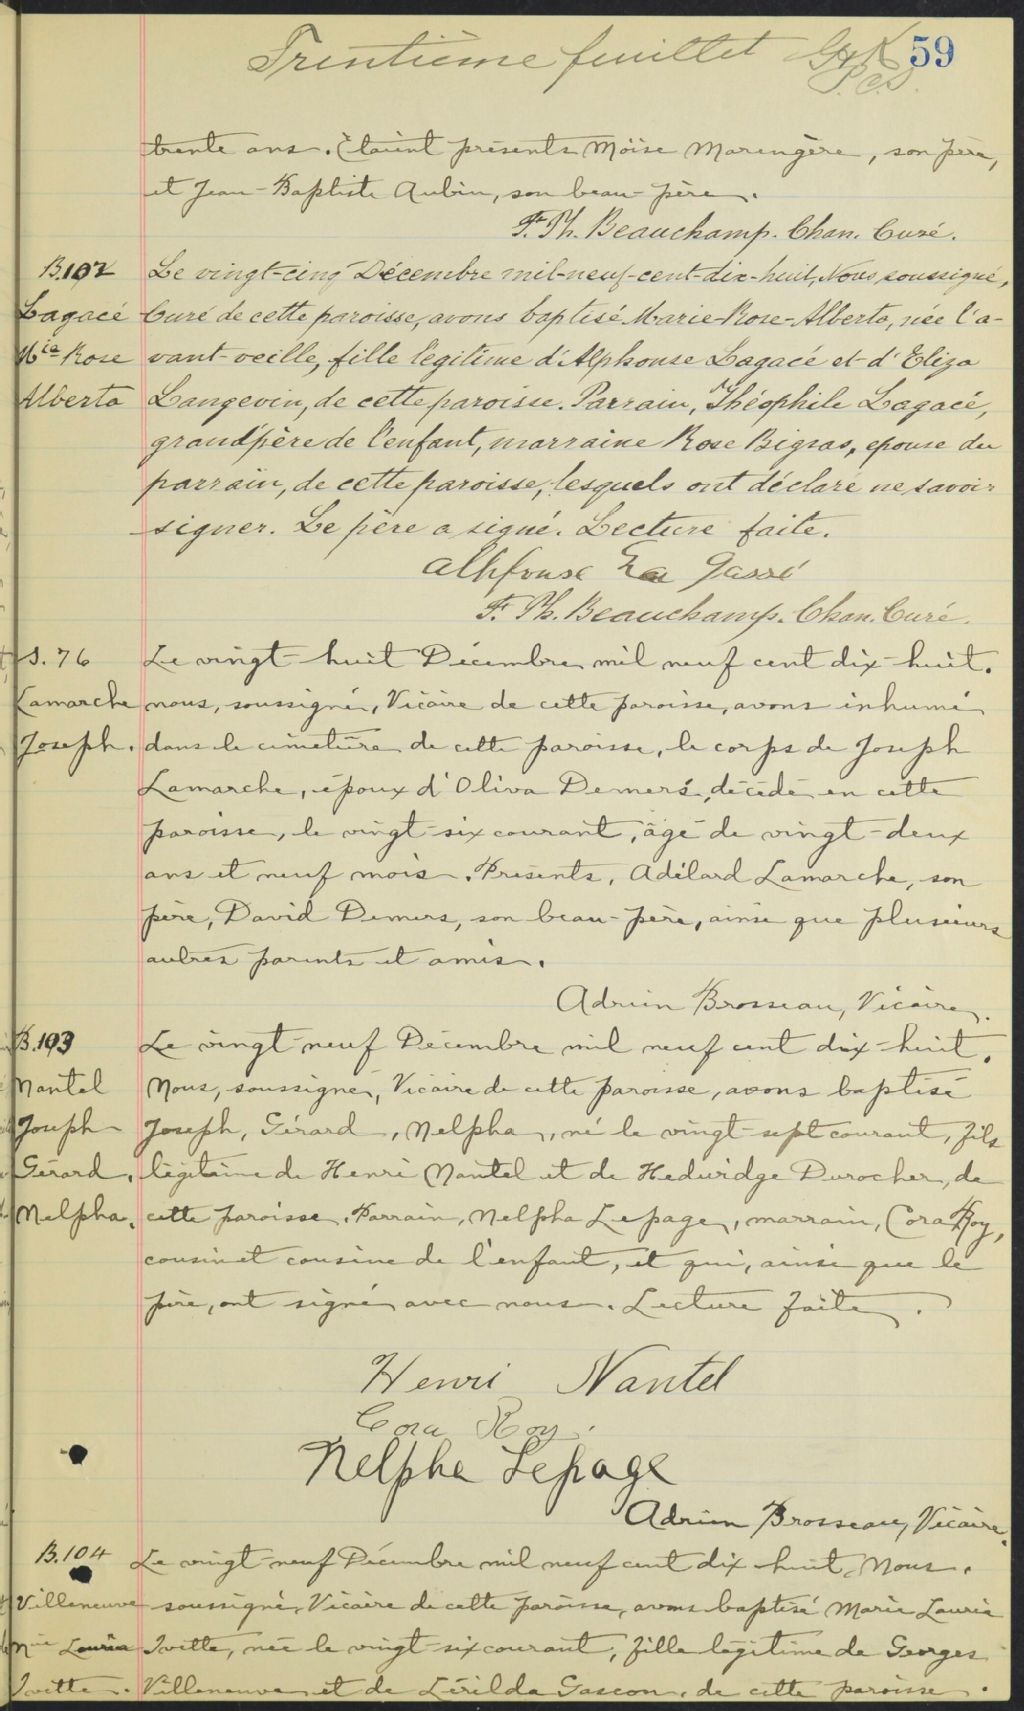 Trentième feuillet G.H.K 59
P.C.S.
trente ans. Étaient présents Moïse Marengère, son père,
et Jean-Baptiste Aubin, son beau-père.
F. Th. Beauchamp. Chan. Curé.
B.102 Le vingt-cinq Décembre mil-neuf-cent-dix-huit, Nous soussigné,
Lagacé Curé de cette paroisse, avons baptisé Marie-Rose-Alberta, née l'a-
Mie Rose vant-veille, fille légitime d'Alphonse Lagacé et d'Eliza
Alberta Langevin, de cette paroisse. Parrain, Théophile Lagacé,
grand'père de l'enfant, marraine Rose Bigras, epouse du
parrain, de cette paroisse, lesquels ont déclaré ne savoir
signer. Le père a signé. Lecture faite.
Alhfonse La Gassé
F. Th. Beauchamp. Chan. Curé.
S. 76 Le vingt-huit Décembre mil neuf cent dix-huit.
Lamarche nous, soussigné, Vicaire de cette paroisse, avons inhumé
Joseph. dans le cimetière de cette paroisse, le corps de Joseph
Lamarche, époux d'Oliva Demers, décédé en cette
paroisse, le vingt-six courant, âgé de vingt-deux
ans et neuf mois. Présents, Adélard Lamarche, son
père, David Demers, son beau-père, ainsi que plusieurs
autres parents et amis.
Adrien Brosseau, Vicaire.
B.103 Le vingt-neuf Décembre mil neuf cent dix-huit.
Nantel Nous, soussigné, Vicaire de cette paroisse, avons baptisé
Joseph Joseph, Gérard, Nelpha, né le vingt-sept courant, fils
Gérard. légitime de Henri Nantel et de Heduidge Durocher, de
Nelpha. cette paroisse. Parrain, Nelpha Lepage, marrain, Cora Roy,
cousin et cousine de l'enfant, et qui, ainsi que le
père, ont signé avec nous. Lecture faite.
Henri Nantel
Cora Roy.
Nelpha Lepage
Adrien Brosseau, Vicaire.
B.104 Le vingt-neuf Décembre mil neuf cent dix-huit, Nous.
Villeneuve soussigné, Vicaire de cette paroisse, avons baptisé Marie Lauria
Mie Lauria Ivette, née le vingt-six courant, fille légitime de Georges
Ivette. Villeneuve et de Lérilda Gascon, de cette paroisse.